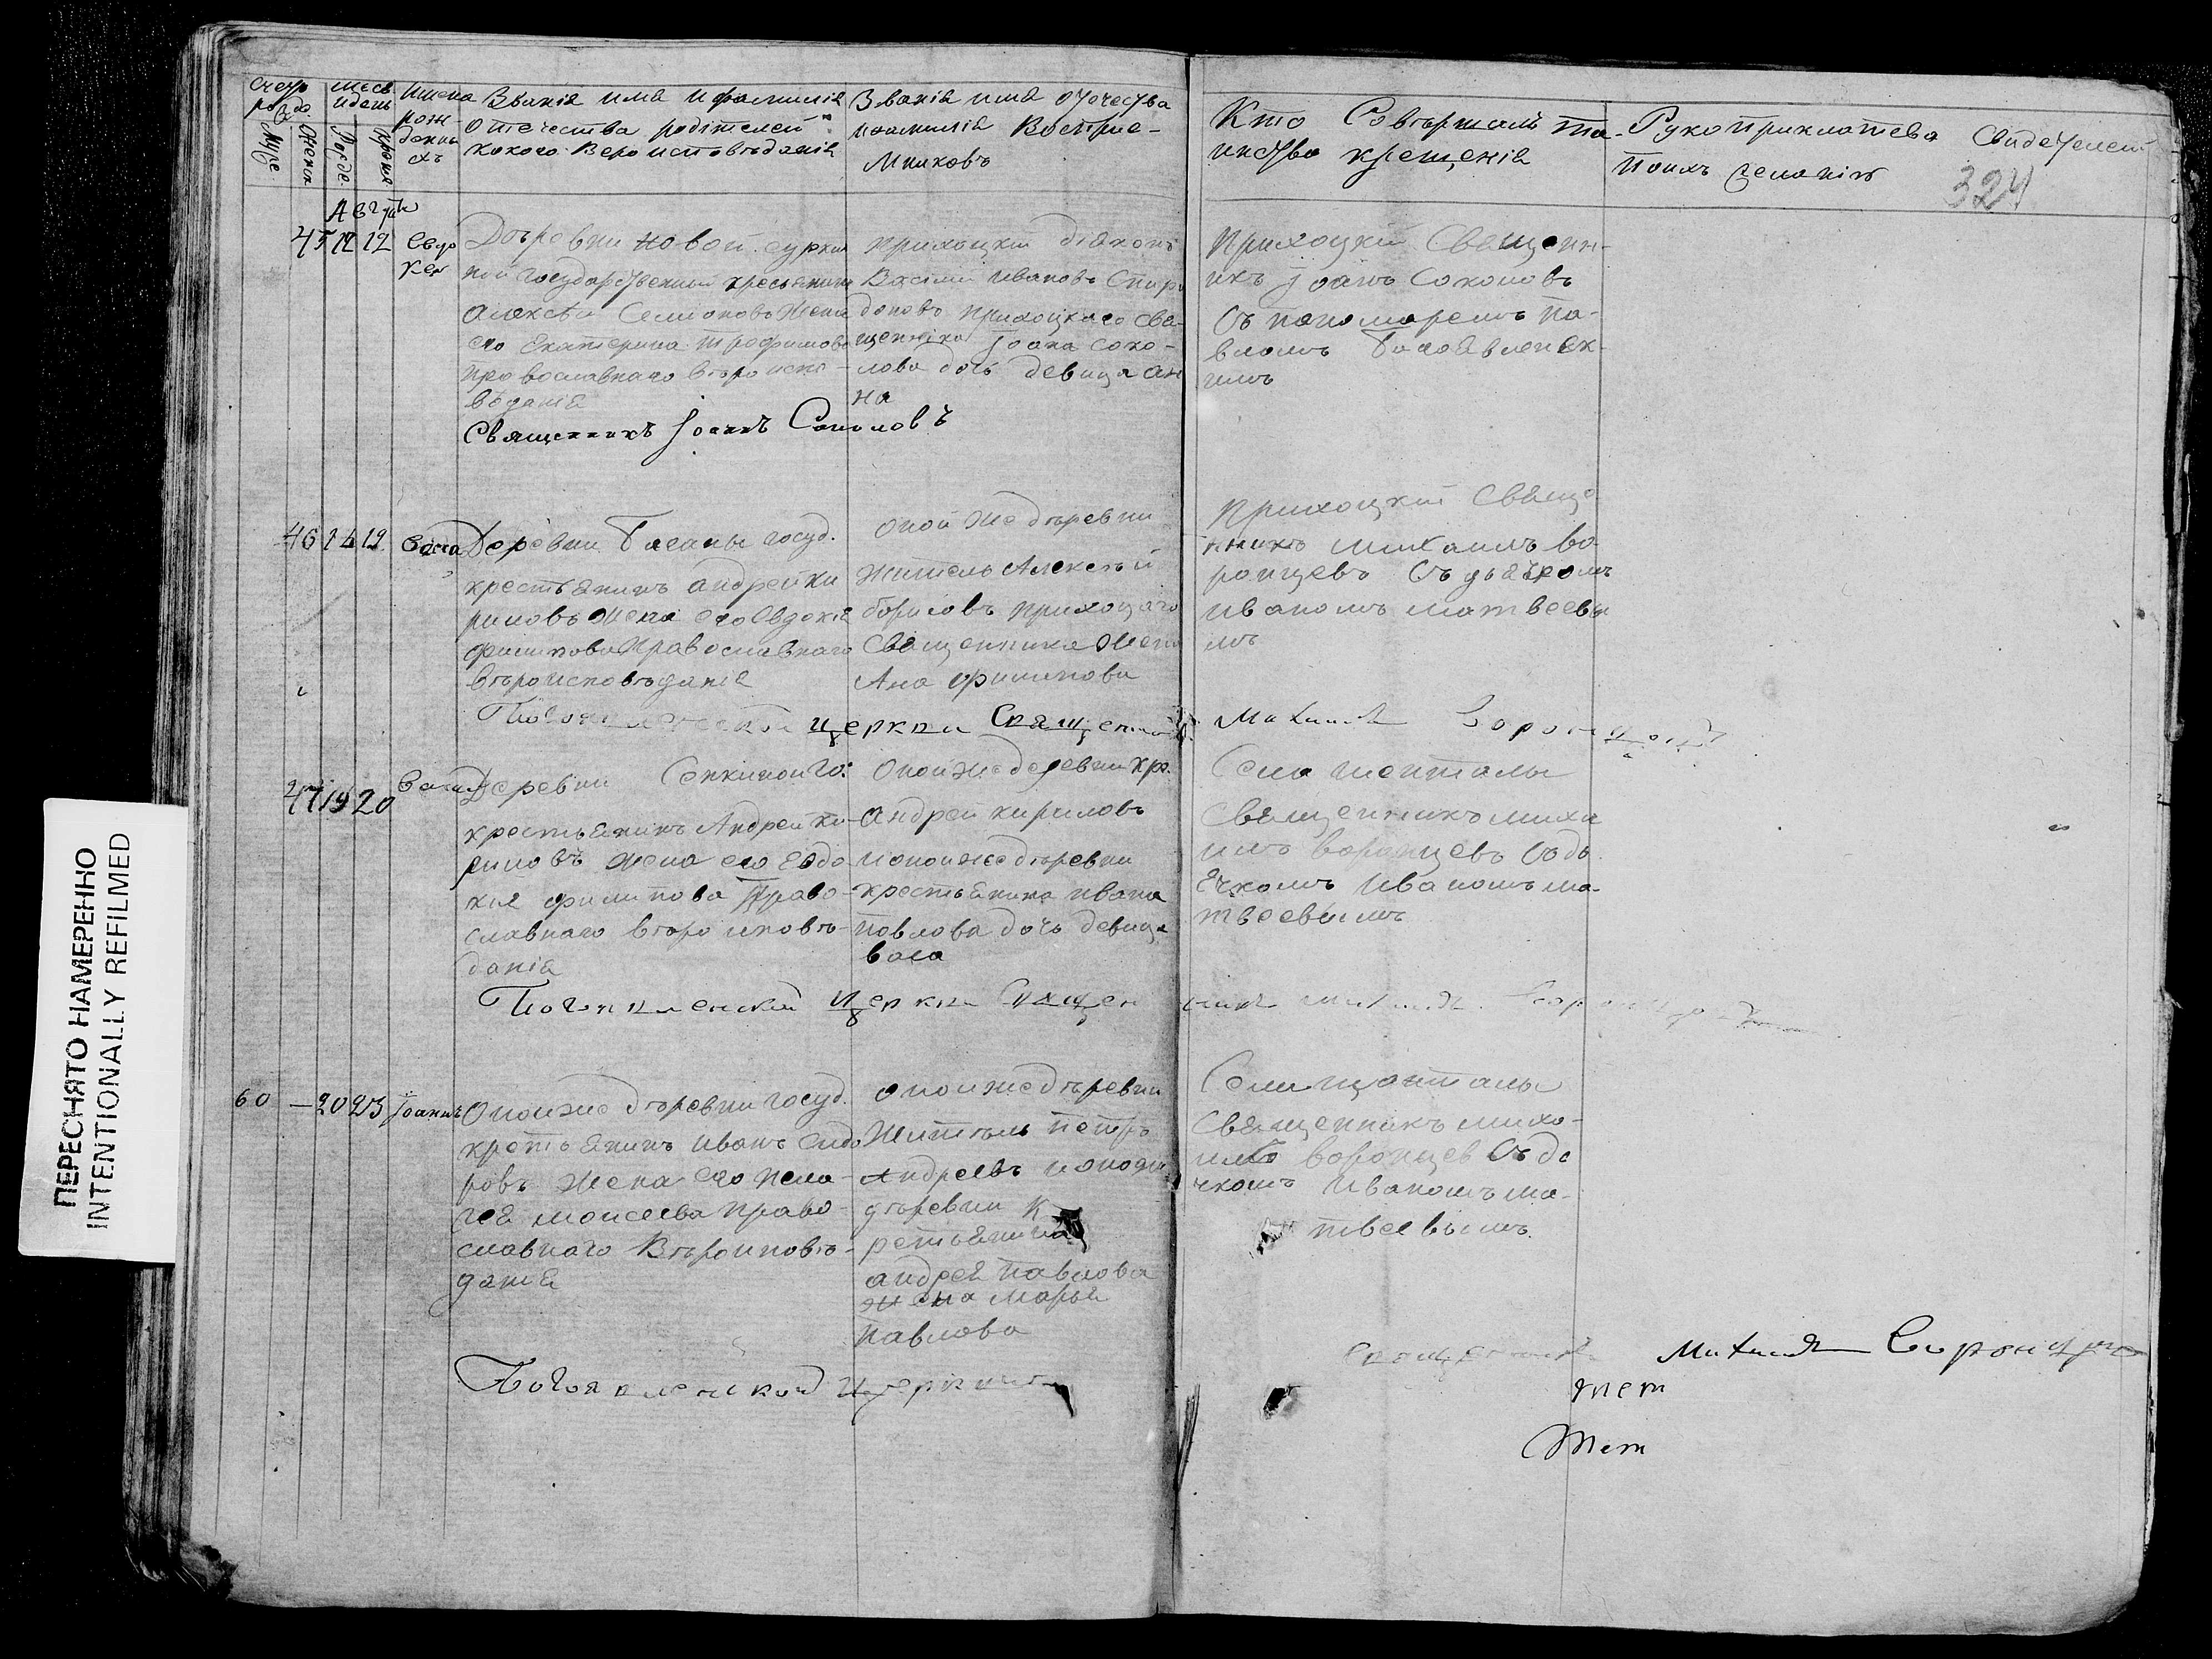 Счетъ родо.
Муже.
Женс
месяц и день
Рожде.
Креще
Имена рожденныхъ
Званія имя и фамилія
Отечества родителей
какого Вероисповѣданія
Званія имя отечества
и фамилія Восприе-
мниковъ
Кто Совѣршалъ та-
инство крещенія
Рукоприклатева Свидетелей
по ихъ желанію
324
Августъ
45 12 12
Дѣревни новой
ной государственный крестьянинъ
Алексѣй Семионовъ Жена
его Екатерина Трофимова
православнаго вѣроиспо-
вѣданія
Священникъ Іоаннъ Соколовъ
приходцкій діаконъ
Васілий Ивановъ Спири
доновъ приходцкаго Свя-
щенника Іоана Соко-
лова дочь девица Ан
на
приходцкій Священн-
икъ Іоанъ Соколовъ
Съ пономаремъ Па-
вломъ Богоявленск-
имъ
46 14 19 Васса
Деревни госуд.
крестьянинъ андрей ки
риловъ жена его Овдокія
филипова Православнаго
вѣроисповѣданія
оной же дѣревни
житель Алексѣй
борисовъ приходцкаго
Священника Жена
Анна филипова
приходцкій Свяще
нникъ михаилъ Во-
ронцевъ Съ дьячкомъ
иваномъ матвеевы
мъ
Богоявленской церкви Священникъ Михаилъ Воронцовъ
47 19 20
Деревни Сенкиной го:
крестьянинъ Андрей ки-
риловъ жена его Евдо
кія филипова Право-
славнаго вѣроисповѣ-
данія
Оной же деревни кре.
Андрей кириловъ
и оной же дѣревни
крестьянина ивана
павлова дочь девица
васа
Села шенталы
Священникъ миха
илъ воронцевъ Содь
ячкомъ Иваномъ ма-
твеевымъ
Богоявленской Церкви Священникъ Михаилъ Воронцовъ
60 — 20 23 Іоаннъ
Оной же дѣревни госуд.
крестьянинъ иванъ сидо
ровъ жена его пела-
гея моисеева право-
славнаго Вѣроиповѣ-
данія
оной же дѣревни
житель петръ
Андреевъ и оной же
дѣревни К
рестьянина
андрея Павлова
жена Марья
павлова
Села шенталы
Священникъ миха-
илъ воронцев Съ дя
чкомъ Иваномъ ма-
твеевымъ
Богоявленской церкви Священникъ Михаилъ Воронцовъ
тет
Тет
ПЕРЕСНЯТО НАМЕРЕННО
INTENTIONALLY REFILMED